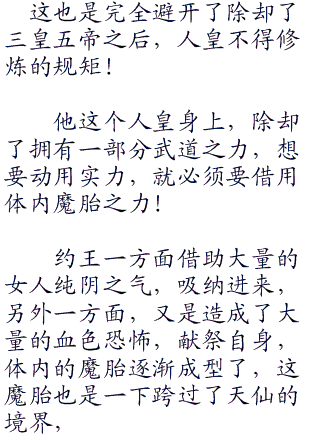 这也是完全避开了除却了
三皇五帝之后，人皇不得修
炼的规矩！
他这个人皇身上，除却
了拥有一部分武道之力，想
要动用实力，就必须要借用
体内魔胎之力！
约王一方面借助大量的
女人纯阴之气，吸纳进来，
另外一方面，又是造成了大
量的血色恐怖，献祭自身，
体内的魔胎逐渐成型了，这
魔胎也是一下跨过了天仙的
境界，